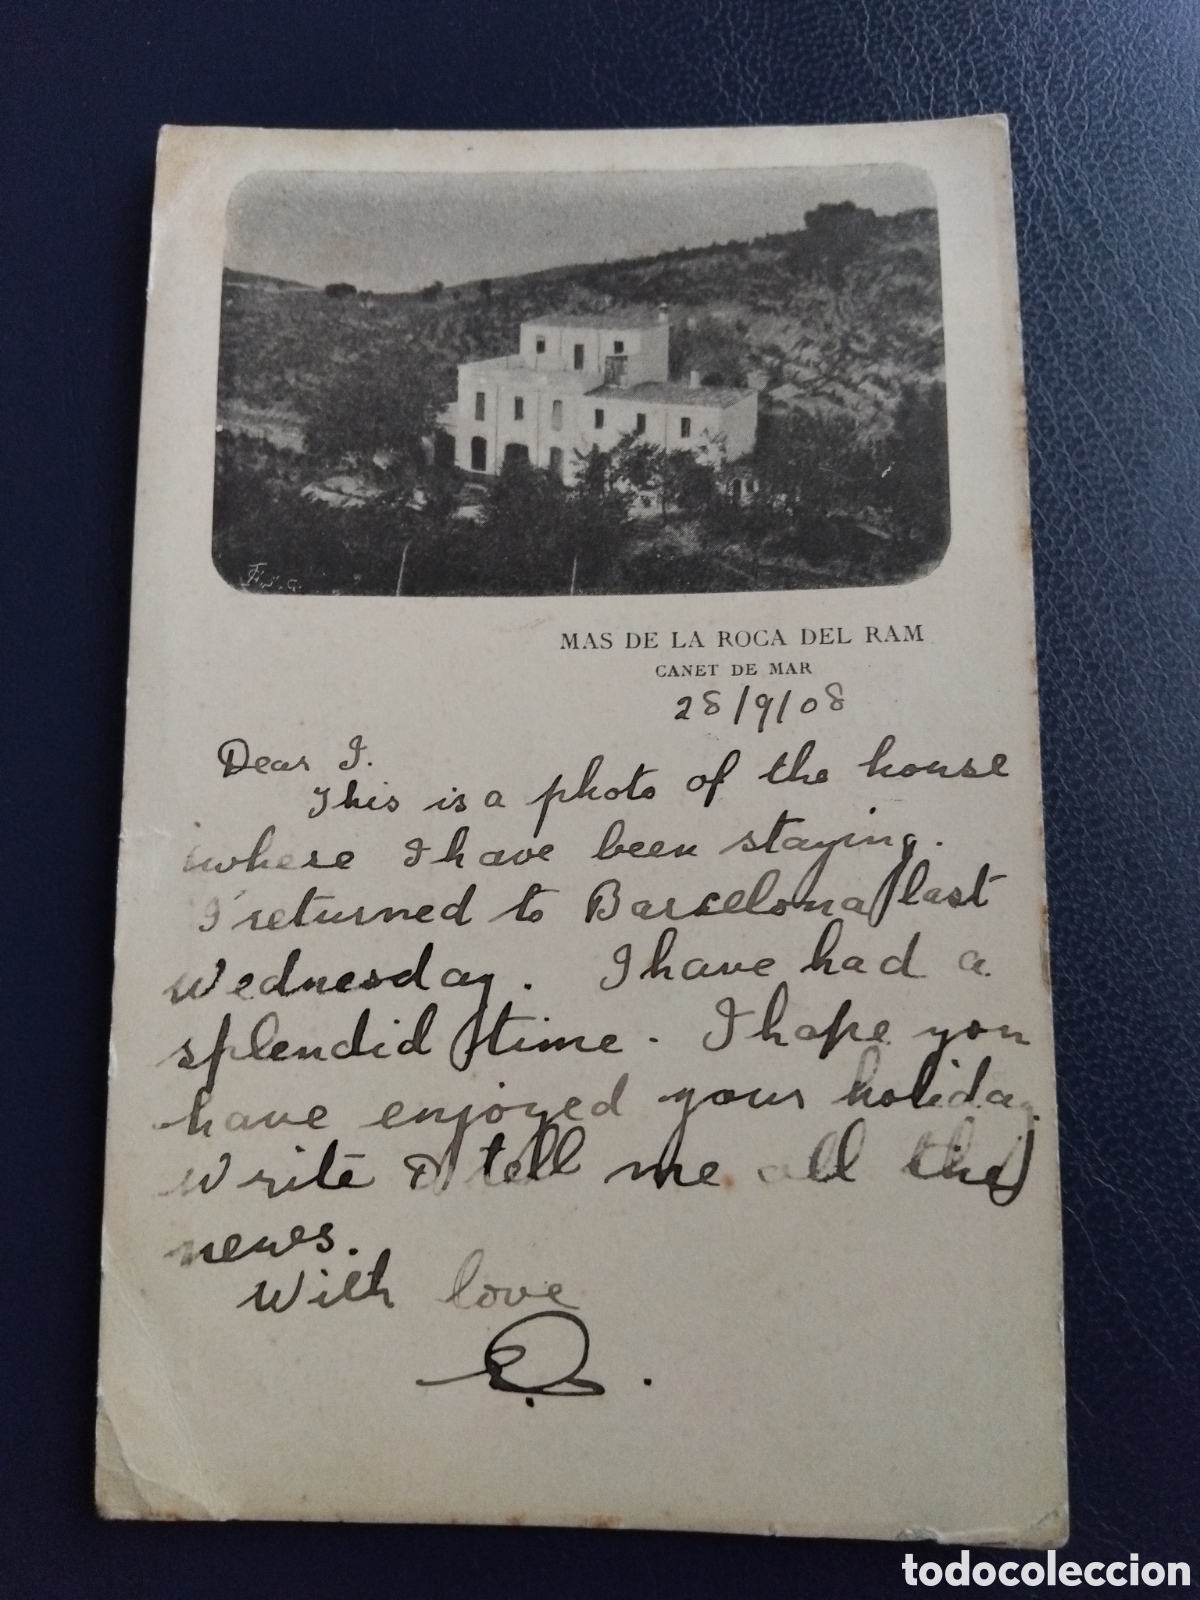 F.T.G.
MAS DE LA ROCA DEL RAM
CANET DE MAR
28/9/08
Dear I.
This is a photo of the house
where I have been staying.
I returned to Barcelona last
Wednesday. I have had a
splendid time. I hope you
have enjoyed your holiday
Write & tell me all the
news.
With love
todocoleccion